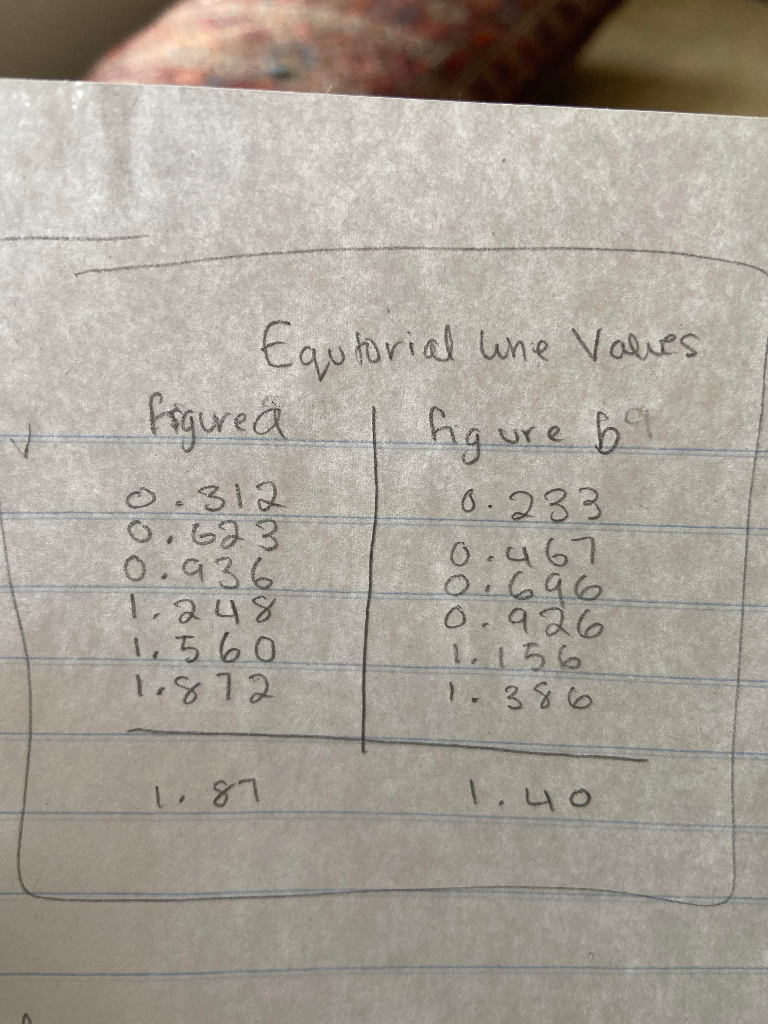 Equtorial line Values
figure a figure b
0.312 0.233
0.623 0.467
0.936 0.696
1.248 0.926
1.560 1.156
1.872 1.386
1.87 1.40